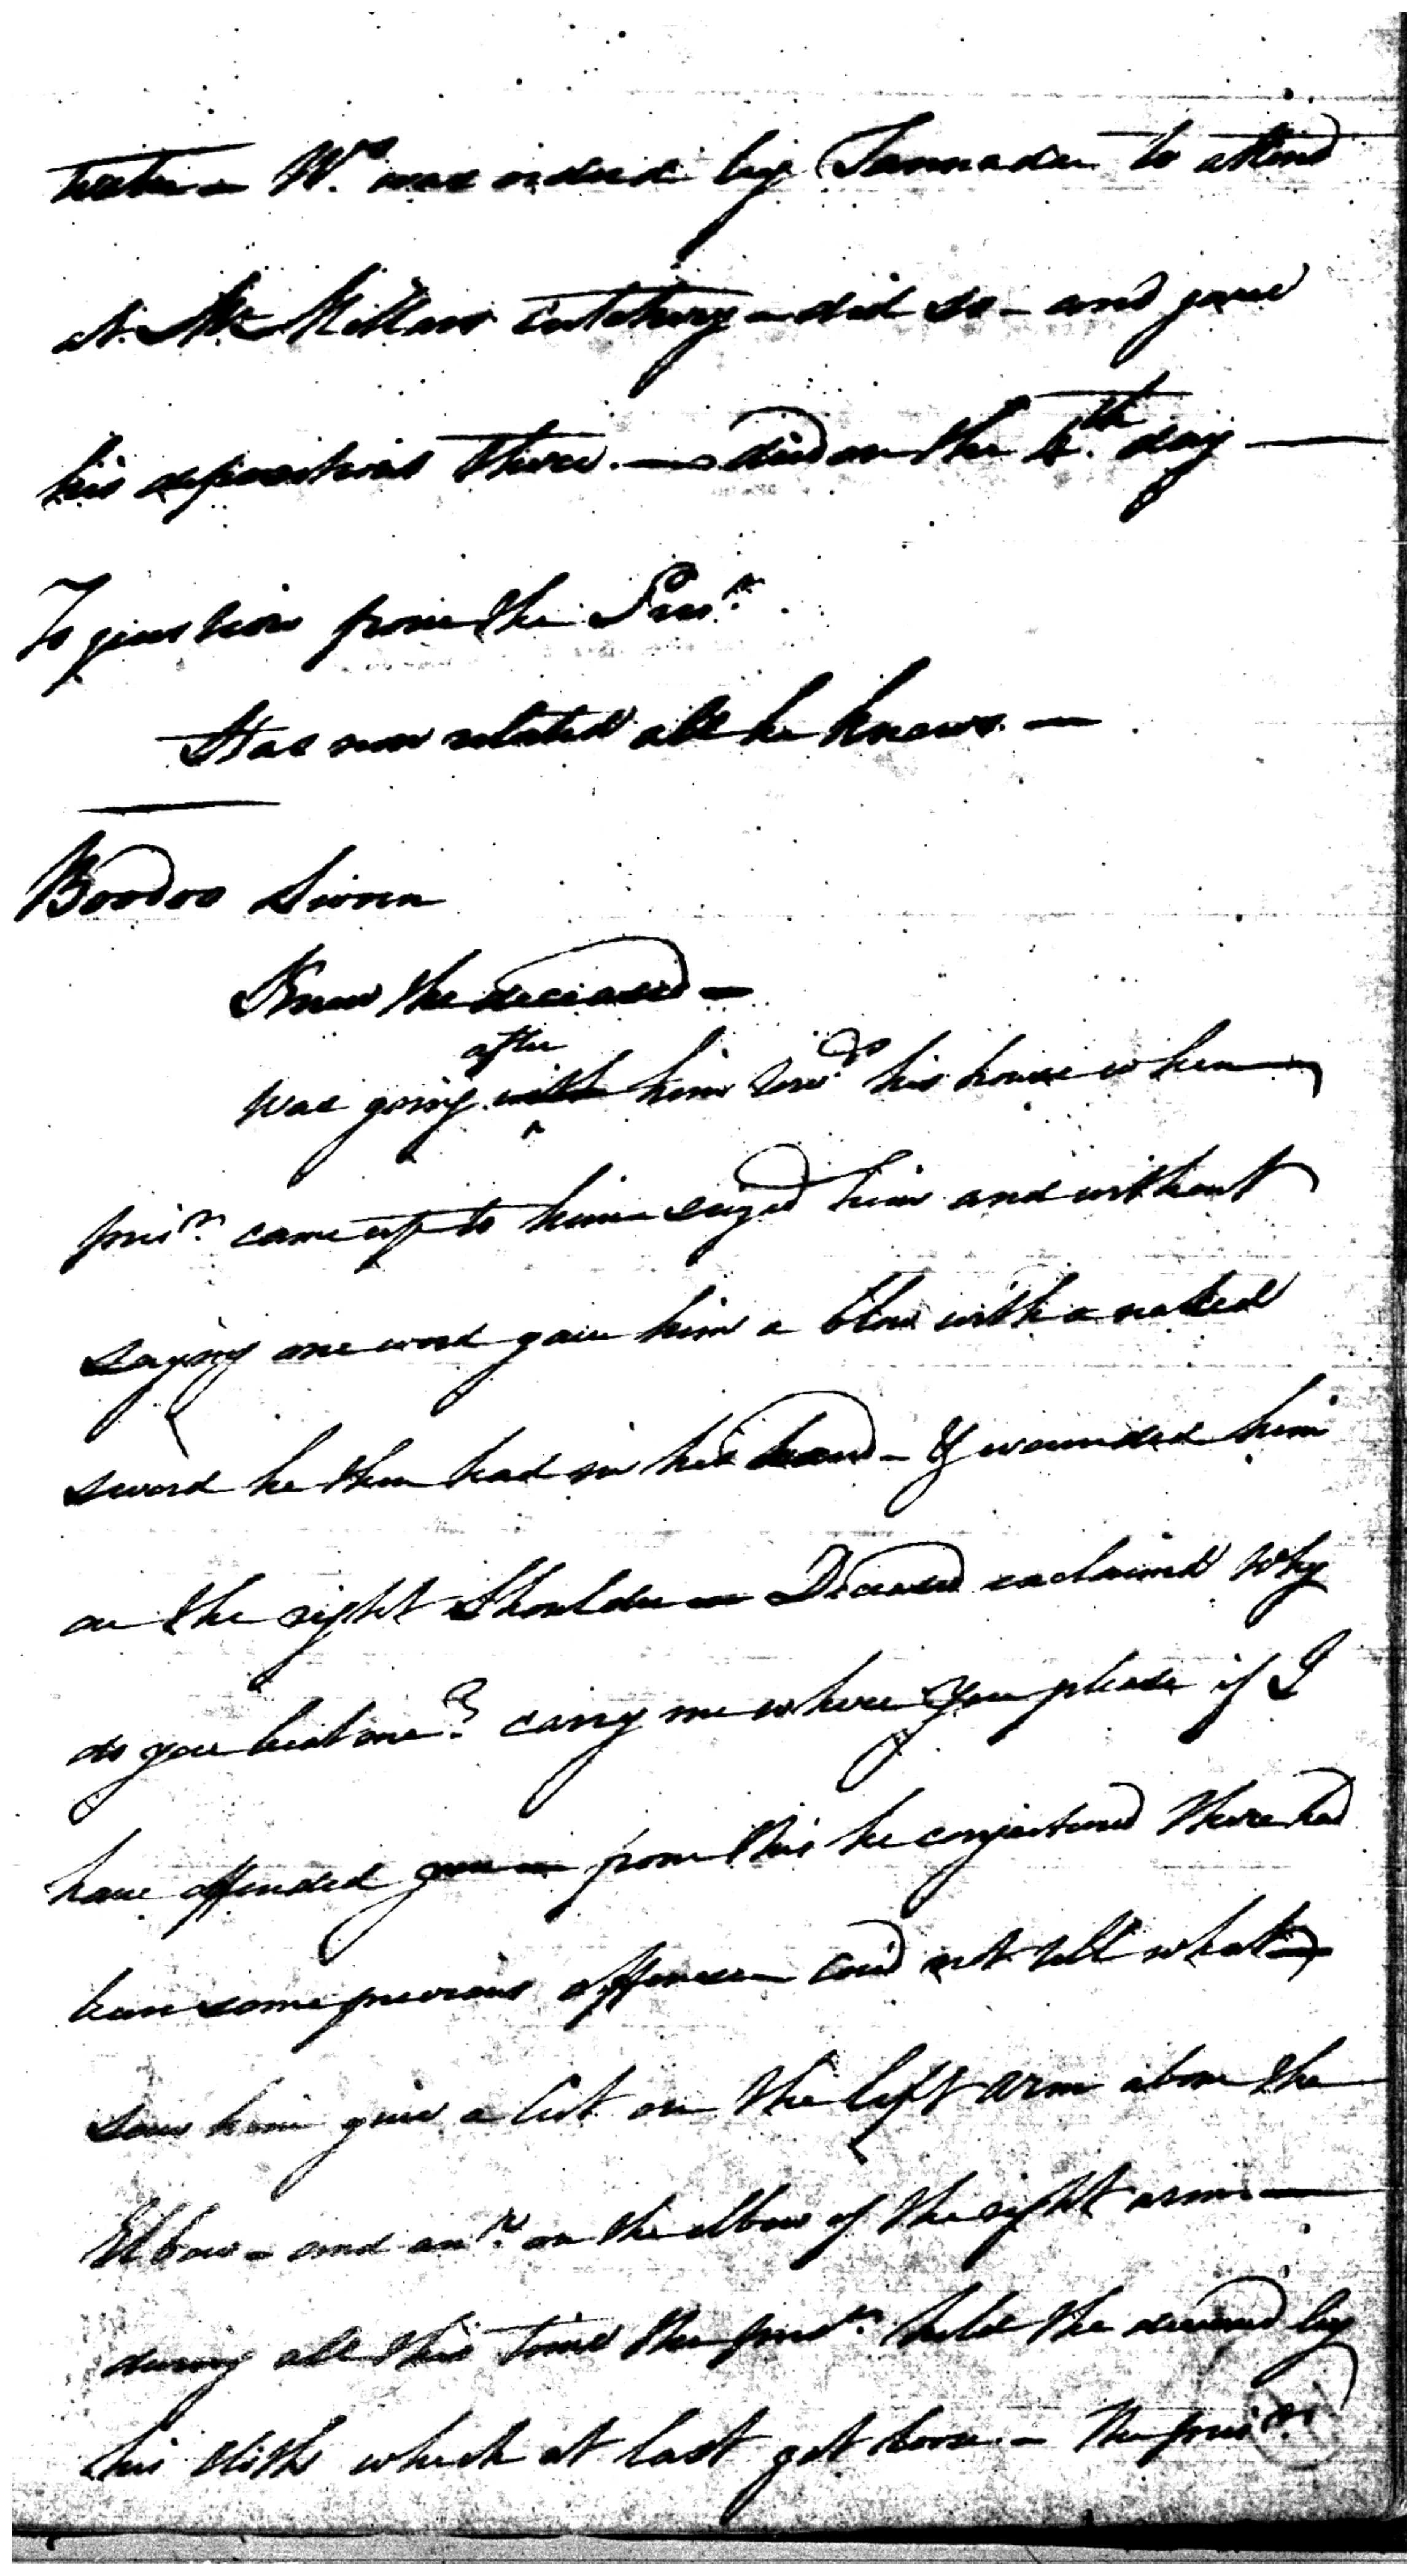 W.s was ordered by Jannadar to attend
at Mr Millars Cutchery - did so - and gave
his depositions there. — died on the 4.th day —
To question from the Pris.r
Has now related all he knows. —
Boodoo Sworn
Knew the deceased —
after
Was going with him tow.ds his house when
pris.r came up to him seized him and without
saying one word gave him a blow with a naked
sword he then had in his hand - If wounded him
on the right Shoulder — Deceased exclaimed Why
do you beat me? carry me where you please if I
have offended you — from this he conjectured there had
been some previous offence — cou'd not tell what —
saw him give a Cut on the left arm above the
Elbow - and an.r on the elbow of the right arm —
during all this time the pris.r held the deceased by
his Cloths which at last got loose. - The pris.r